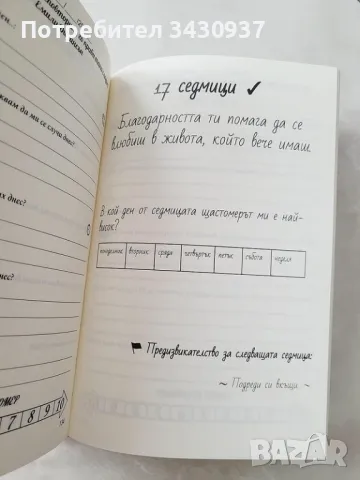 Потребител 3430937
17 седмици ✓
Благодарността ти помага да се
влюбиш в живота, който вече имаш.
В кой ден от седмицата щастомерът ми е най-
висок?
понеделник вторник сряда четвъртък петък събота неделя
Предизвикателство за следващата седмица:
~ Подреди си вкъщи ~
да ми се случи днес?
днес?
7 8 9 10
BAZAR